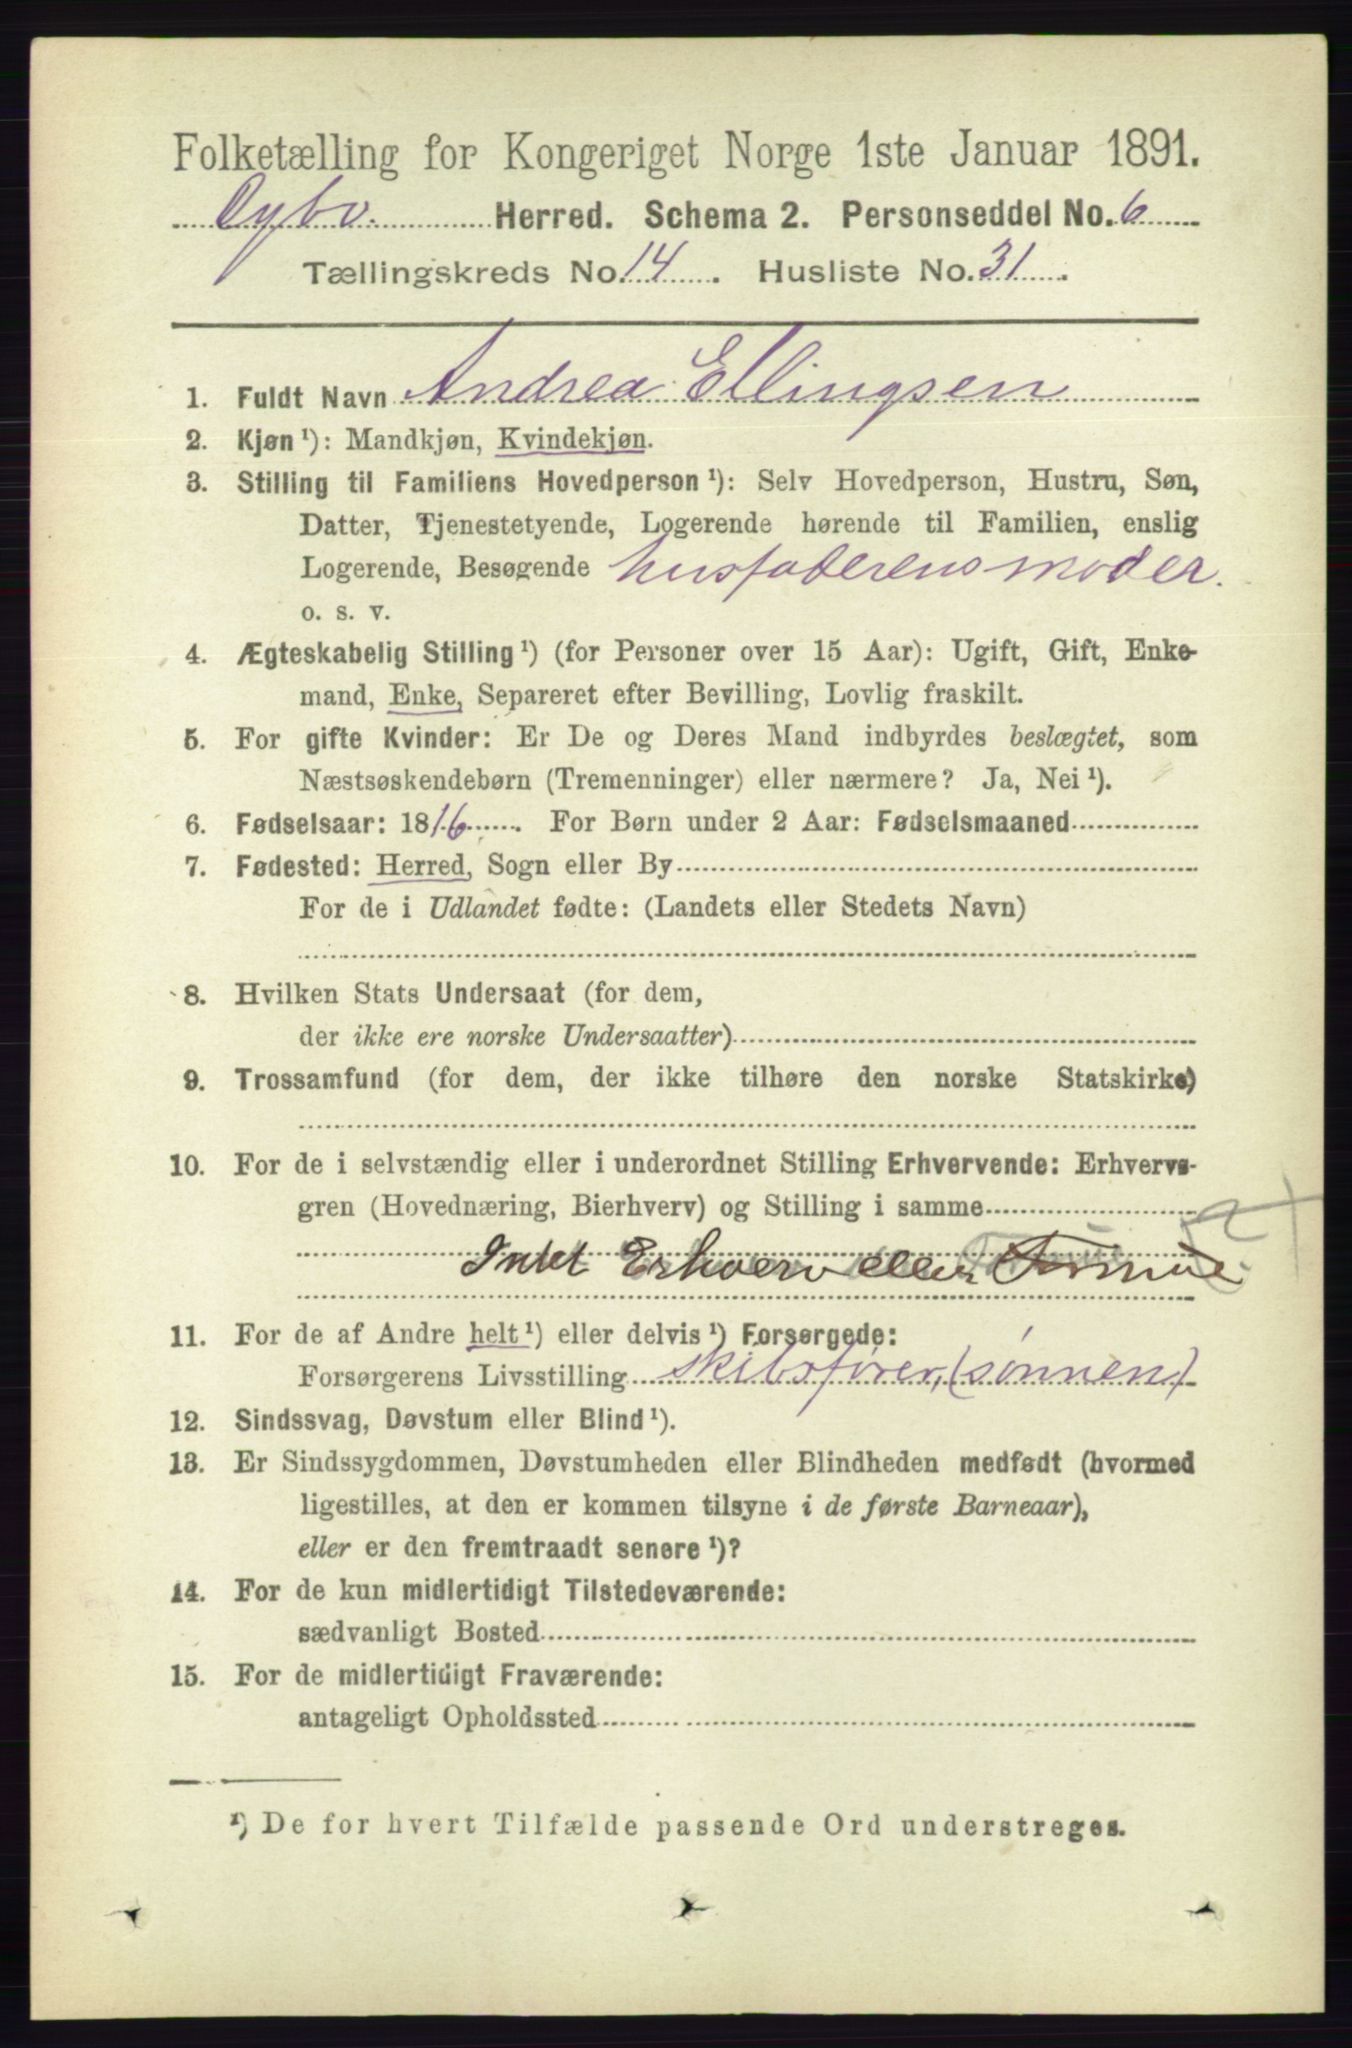 Folketælling for Kongeriget Norge 1ste Januar 1891.
Herred. Schema 2. Personseddel No. 6
Tællingskreds No. 14. Husliste No. 31.
1. Fuldt Navn Andrea Ellingsen
2. Kjøn ¹): Mandkjøn, Kvindekjøn.
3. Stilling til Familiens Hovedperson ¹): Selv Hovedperson, Hustru, Søn,
Datter, Tjenestetyende, Logerende hørende til Familien, enslig
Logerende, Besøgende husfaderens moder.
o. s. v.
4. Ægteskabelig Stilling ¹) (for Personer over 15 Aar): Ugift, Gift, Enke-
mand, Enke, Separeret efter Bevilling, Lovlig fraskilt.
5. For gifte Kvinder: Er De og Deres Mand indbyrdes beslægtet, som
Næstsøskendebørn (Tremenninger) eller nærmere? Ja, Nei ¹).
6. Fødselsaar: 1816. For Børn under 2 Aar: Fødselsmaaned
7. Fødested: Herred, Sogn eller By
For de i Udlandet fødte: (Landets eller Stedets Navn)
8. Hvilken Stats Undersaat (for dem,
der ikke ere norske Undersaatter)
9. Trossamfund (for dem, der ikke tilhøre den norske Statskirke)
10. For de i selvstændig eller i underordnet Stilling Erhvervende: Erhvervs-
gren (Hovednæring, Bierhverv) og Stilling i samme
Intet Erhverv eller Formue
11. For de af Andre helt ¹) eller delvis ¹) Forsørgede:
Forsørgerens Livsstilling skibsfører, (sønnen)
12. Sindssvag, Døvstum eller Blind ¹).
13. Er Sindssygdommen, Døvstumheden eller Blindheden medfødt (hvormed
ligestilles, at den er kommen tilsyne i de første Barneaar),
eller er den fremtraadt senere ¹)?
14. For de kun midlertidigt Tilstedeværende:
sædvanligt Bosted
15. For de midlertidigt Fraværende:
antageligt Opholdssted
¹) De for hvert Tilfælde passende Ord understreges.